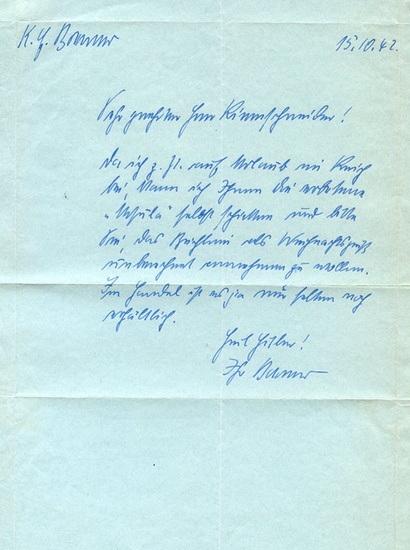 K. H. 15.10.42.
Sehr geehrter Herr Riemschneider!
Da ich z. Zt. auf Urlaub im Reich
bin, kann ich Ihnen die erbetene
„Ursula" selbst schicken und bitte
Sie, das Büchlein als Weihnachtsgruß
unberechnet annehmen zu wollen.
Im Handel ist es ja nur selten noch
erhältlich.
Heil Hitler!
Ihr